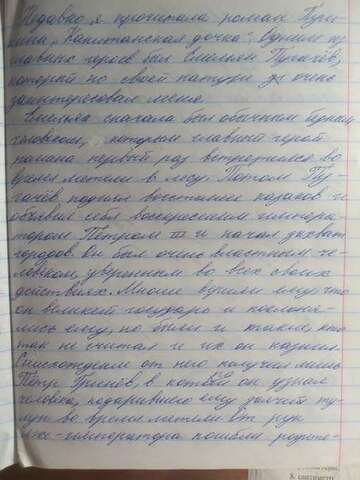 Недавно, я прочитала роман Пуш-
кина „Капитанская дочка“. Одним из
главных героев был Емельян Пугачёв,
который по своей натуре очень
заинтересовал меня.
Емельян сначала был обычным бедным
человеком, с которым главный герой
романа первый раз встретился во
время метели в лесу. Потом Пу-
гачёв поднял восстание казаков и
объявил себя воскресшим импера-
тором Петром III и начал захват
городов. Он был очень властным че-
ловеком, уверенным во всех своих
действиях. Многие верили ему, что
он великий государь и поклоня-
лись ему, но были и такие, кто
так не считал и их он казнил.
Снисхождение от него получил лишь
Пётр Гринёв, в котором он узнал
человека, подарившего ему заячий ту-
луп во время метели. От рук
лже-императора погибли родите-